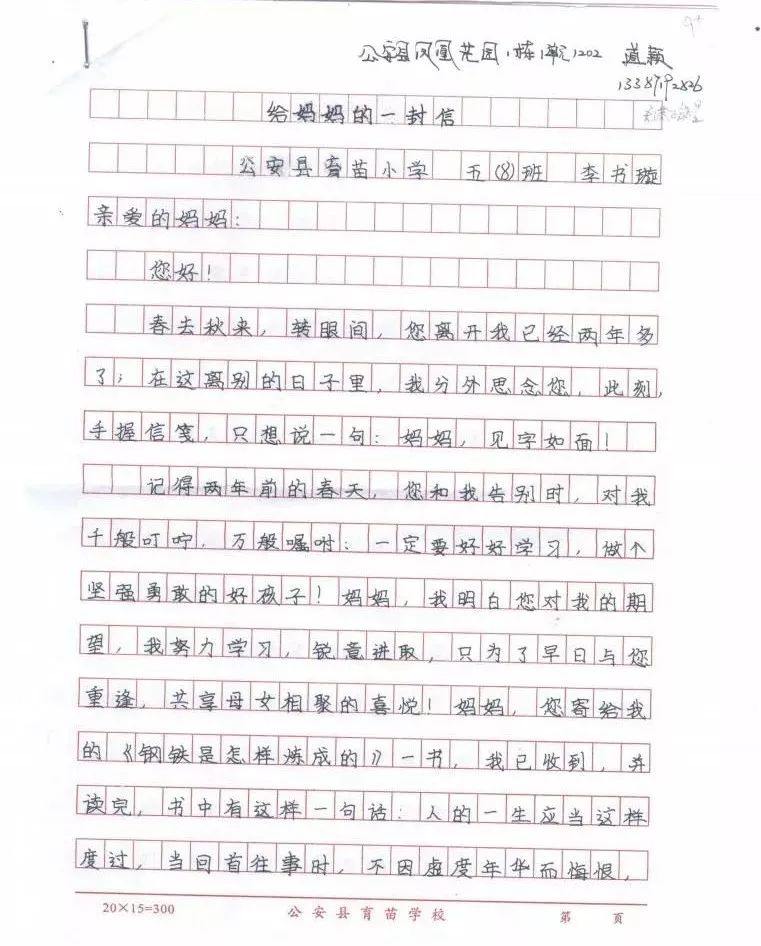 9+
公安县凤凰花园1栋1单元1202 道颖
给妈妈的一封信
公安县育苗小学 五(8)班 李书璇
亲爱的妈妈:
您好!
春去秋来,转眼间,您离开我已经两年多
了;在这离别的日子里,我分外思念您,此刻,
手握信笺,只想说一句:妈妈,见字如面!
记得两年前的春天,您和我告别时,对我
千般叮咛,万般嘱咐:一定要好好学习,做个
坚强勇敢的好孩子!妈妈,我明白您对我的期
望,我努力学习,锐意进取,只为了早日与您
重逢,共享母女相聚的喜悦!妈妈,您寄给我
的《钢铁是怎样炼成的》一书,我已收到,并
读完,书中有这样一句话:人的一生应当这样
度过,当回首往事时,不因虚度年华而悔恨,
20×15=300 公安县育苗学校 第 页